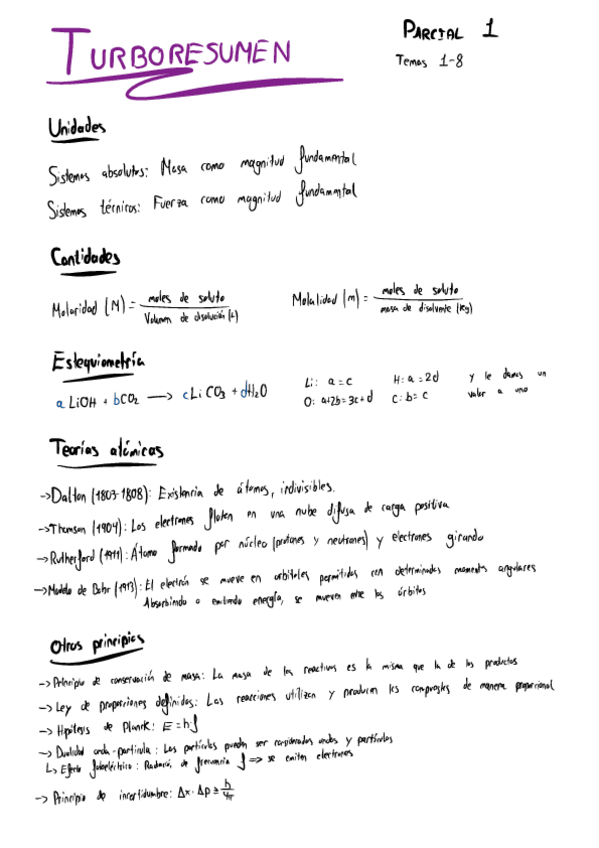 TURBORESUMEN
PARCIAL 1
Temas 1-8
Unidades
Sistemas absolutos: Masa como magnitud fundamental
Sistemas técnicos: Fuerza como magnitud fundamental
Cantidades
Molaridad (M) = moles de soluto / Volumen de disolución (L)
Molalidad (m) = moles de soluto / masa de disolvente (kg)
Estequiometría
aLiOH + bCO₂ → cLiCO₃ + dH₂O
Li: a=c H: a=2d y le damos un
O: a+2b=3c+d C: b=c valor a uno
Teorías atómicas
→ Dalton (1803-1808): Existencia de átomos, indivisibles.
→ Thomson (1904): Los electrones flotan en una nube difusa de carga positiva
→ Rutherford (1911): Átomo formado por núcleo (protones y neutrones) y electrones girando
→ Modelo de Bohr (1913): El electrón se mueve en orbitales permitidos con determinados momentos angulares
Absorbiendo o emitiendo energía, se mueven entre las órbitas
Otros principios
→ Principio de conservación de masa: La masa de los reactivos es la misma que la de los productos
→ Ley de proporciones definidas: Las reacciones utilizan y producen los compuestos de manera proporcional
→ Hipótesis de Planck: E=h·f
→ Dualidad onda-partícula: Las partículas pueden ser consideradas ondas y partículas
↳ Efecto fotoeléctrico: Radiación de frecuencia f ⇒ se emiten electrones
→ Principio de incertidumbre: Δx · Δp ≥ h/4π